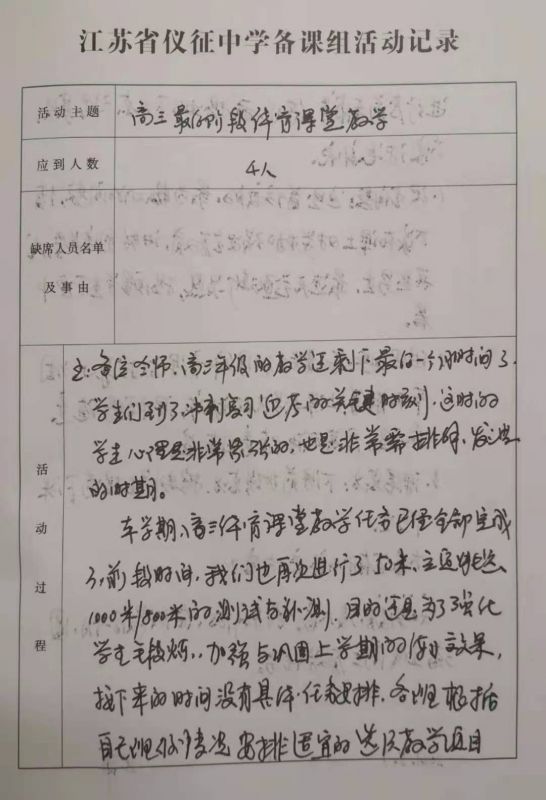 江苏省仪征中学备课组活动记录
活动主题
高三最后阶段体育课堂教学
应到人数
4人
缺席人员名单
及事由
活动过程
主：各位老师，高三年级的教学还剩下最后一个月时间了，
学生们到了冲刺复习迎考的关键时刻，这时的
学生心理是非常紧张的，也是非常需排解、发泄
的时期。
本学期，高三体育课堂教学任务已经全部完成
了，前段时间，我们也再次进行了50米、立定跳远、
1000米/800米的测试与补测，目的还是为了强化
学生锻炼，加强与巩固上学期的效果，
接下来的时间没有具体任务安排，各班根据
自己班级情况安排适宜的选项教学项目